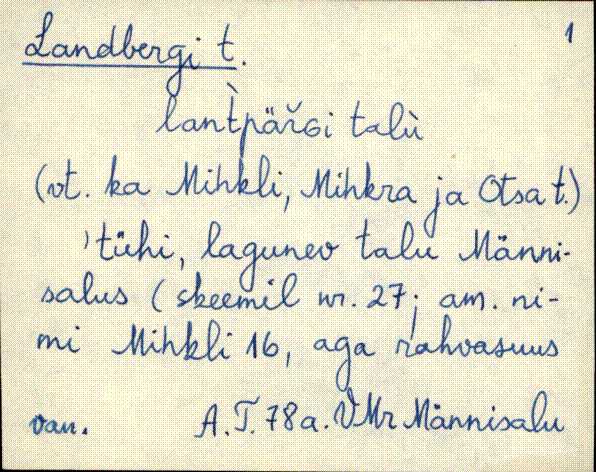 Landbergi t. 1
lant̀päřɢi talù
(vt. ka Mihkli, Mihkra ja Otsa t.)
'tühi, lagunev talu Männi-
salus (skeemil nr. 27; am. ni-
mi Mihkli 16, aga rahvasuus
van. A.T. 78a. VMr Männisalu